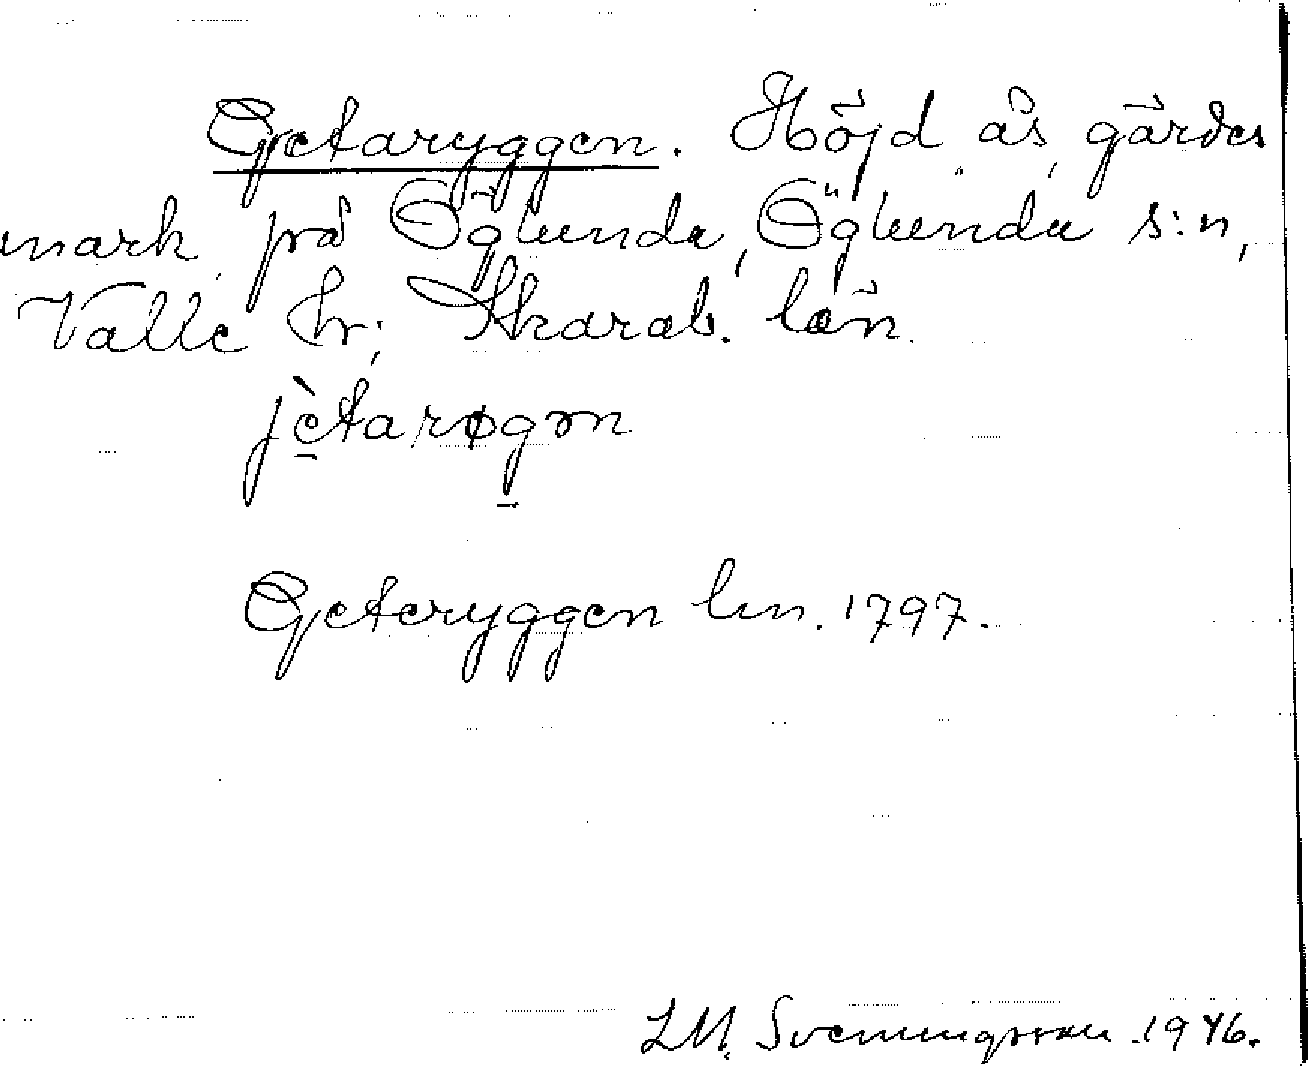 Getaryggen. Höjd, ås, gärdes
mark på Öglunda, Öglunda s:n,
Valle hr; Skarab. län.
jètarøgən
Geteryggen lm. 1797.
L.M. Svenungsson. 1946.